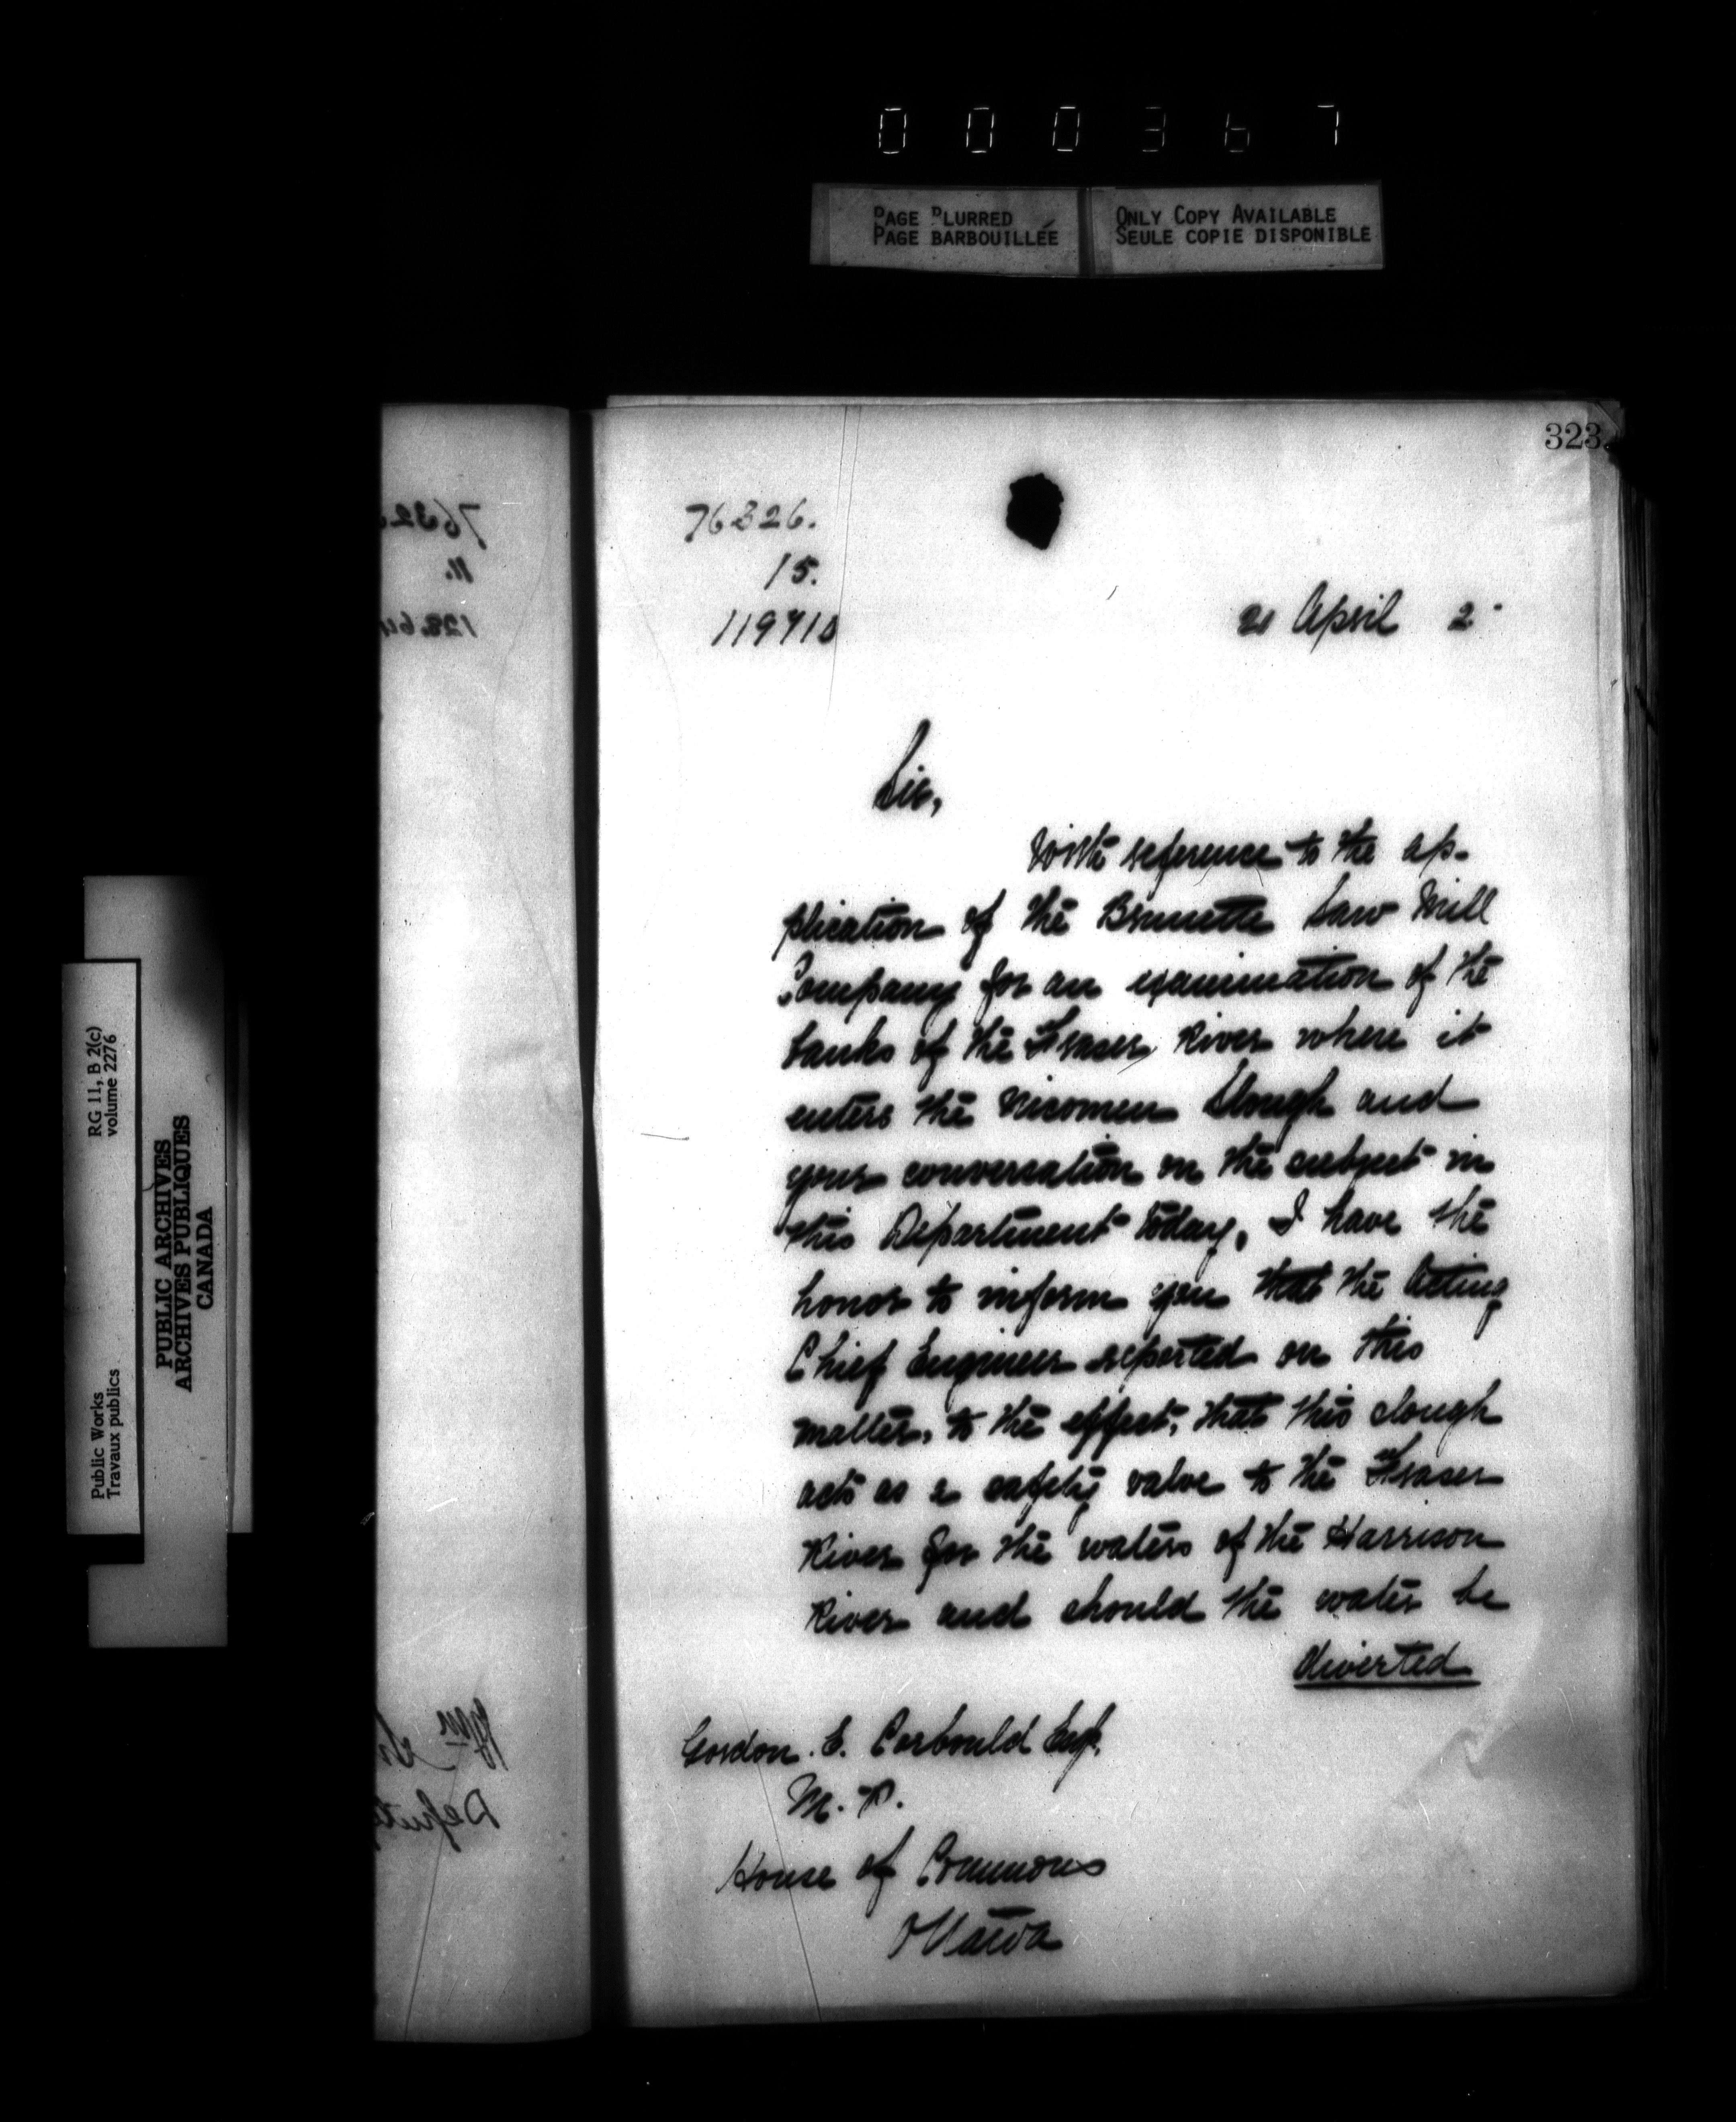 000367
PAGE BLURRED
PAGE BARBOUILLÉE
ONLY COPY AVAILABLE
SEULE COPIE DISPONIBLE
323.
76326.
15.
119710
April 2
Sir,
With reference to the ap-
plication of the Brunette Saw Mill
Company for an examination of the
banks of the Fraser River where it
enters the Nicomen Slough and
your conversation on the subject in
this Department today, I have the
honor to inform you that the Acting
Chief Engineer reported on this
matter, to the effect, that this slough
acts as a safety valve to the Fraser
River for the waters of the Harrison
River and should the water be
diverted
Gordon. E. Corbould Esq.
M. P.
House of Commons
Ottawa
RG 11, B 2(c)
volume 2276
Public Works
Travaux publics
PUBLIC ARCHIVES
ARCHIVES PUBLIQUES
CANADA